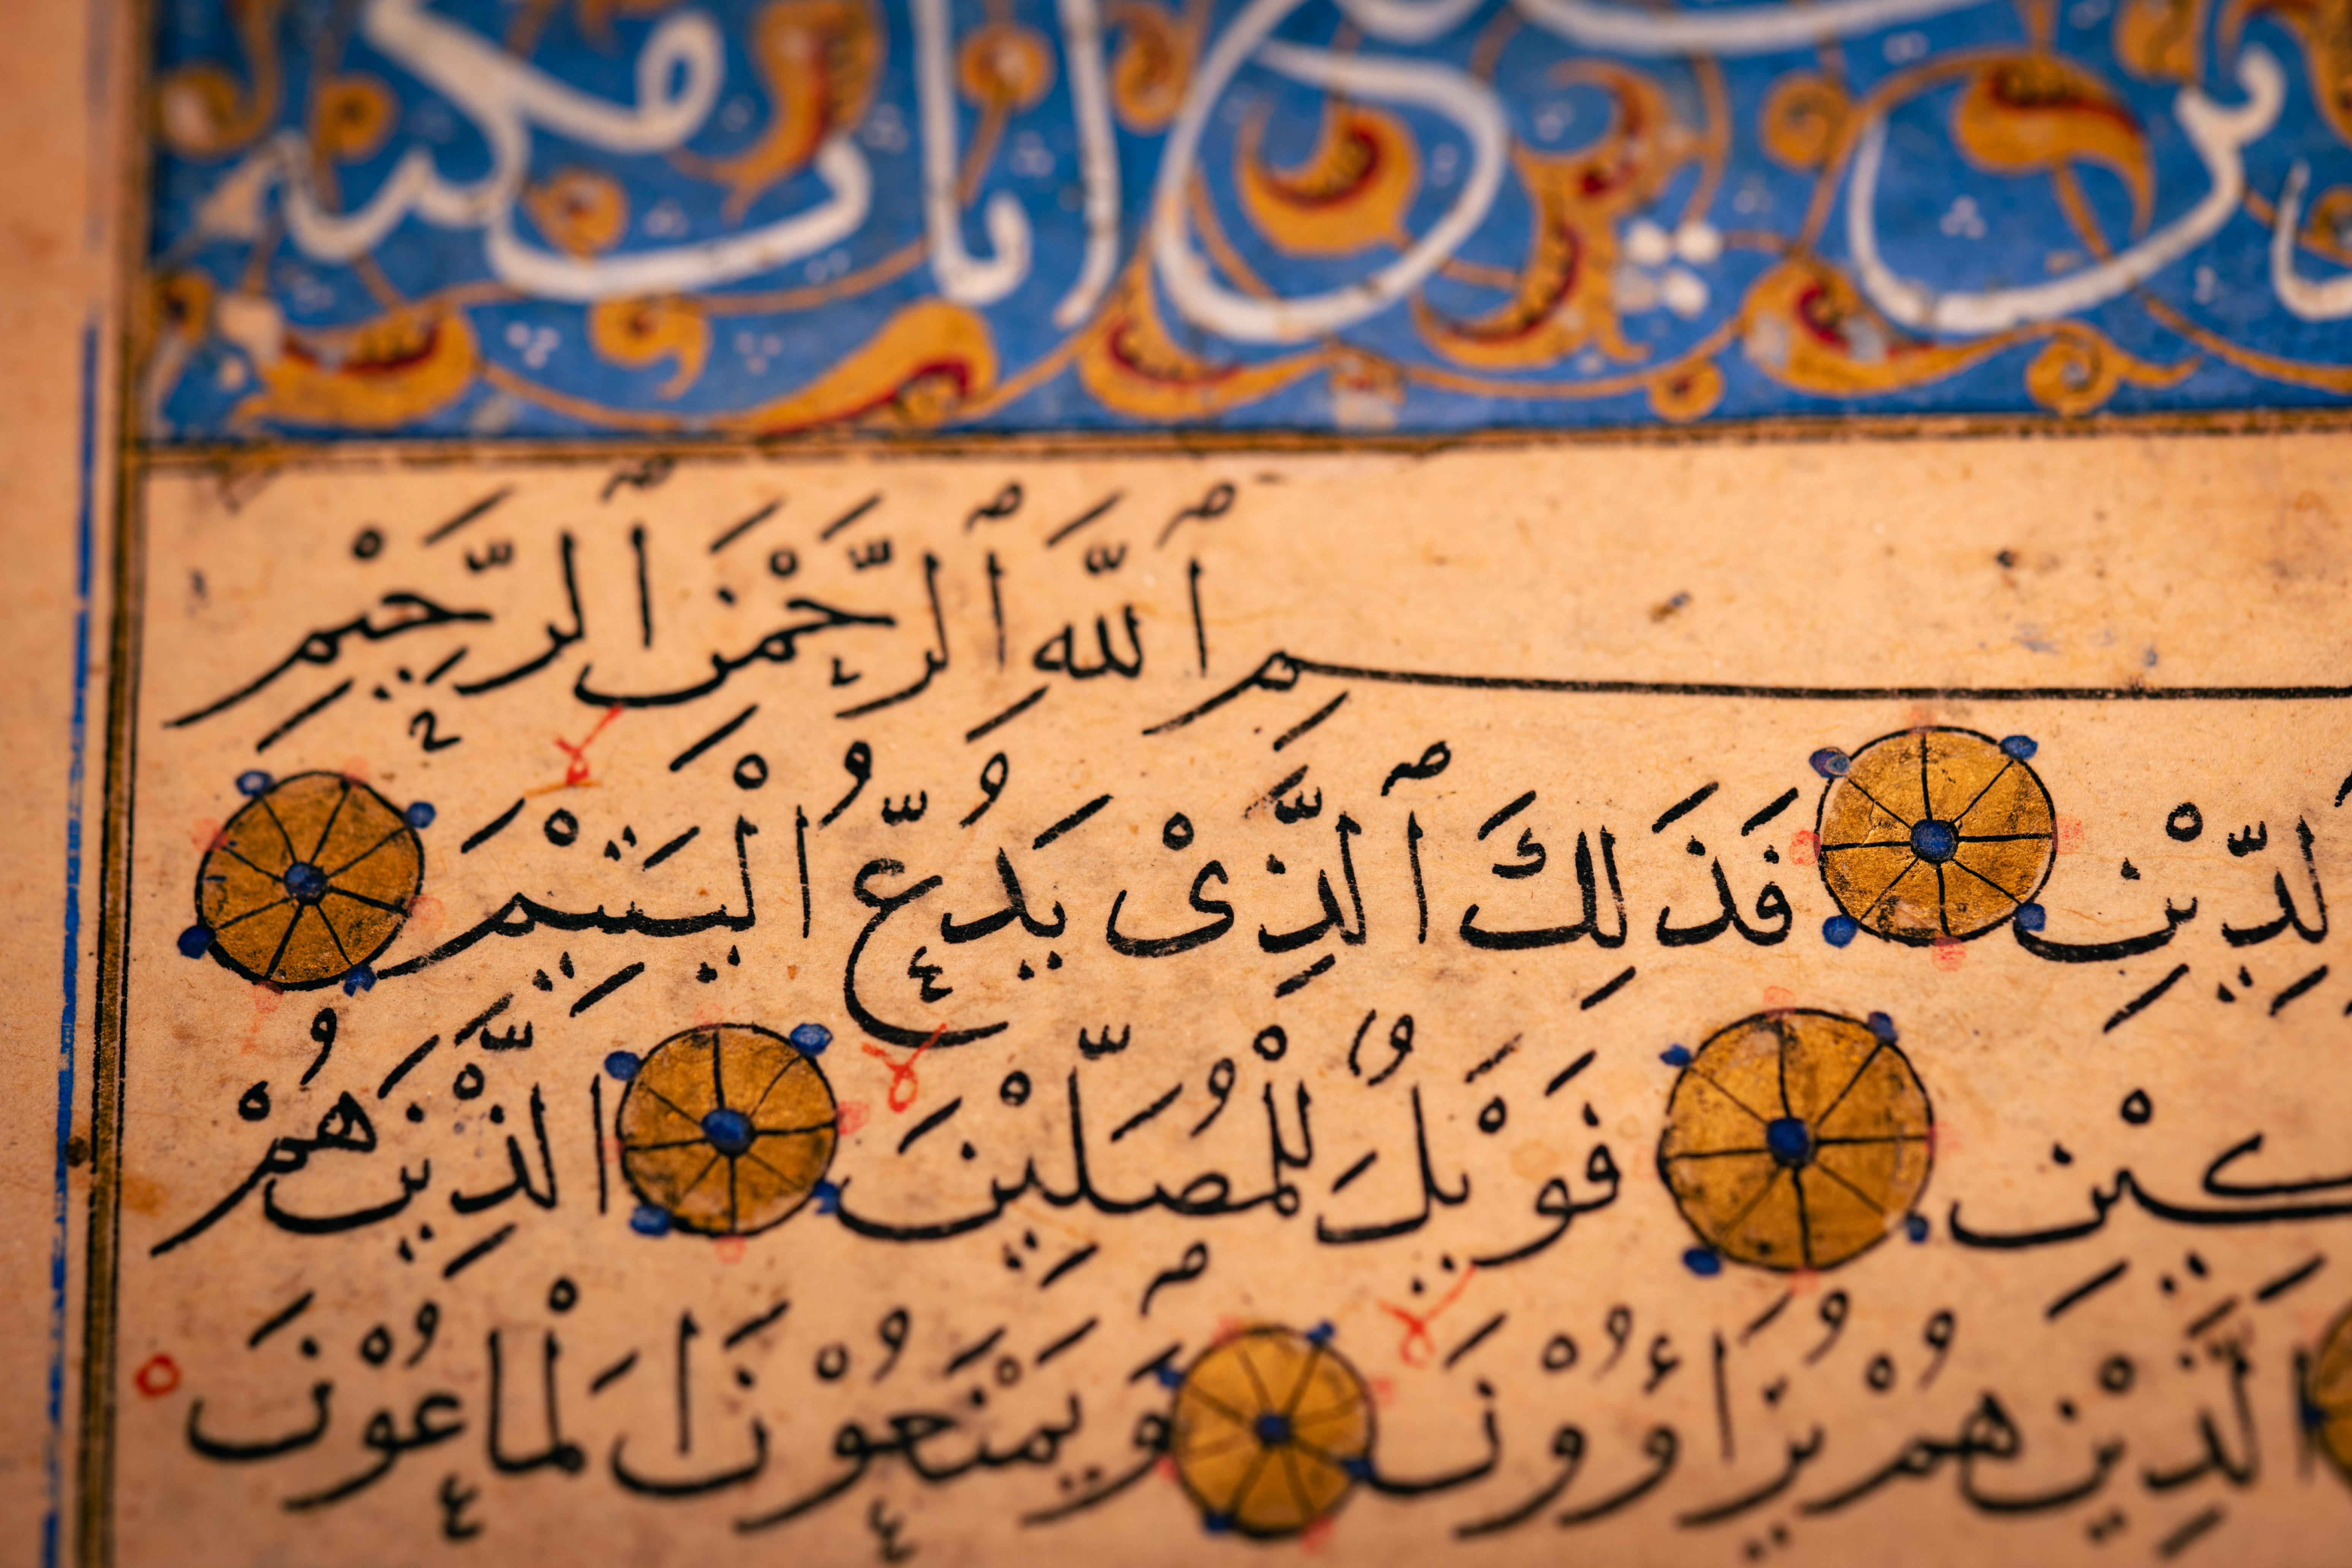 ايات مكيه
ـمِ ٱللَّهِ ٱلرَّحْمَنِ ٱلرَّحِيْمِ
لدِّيْنِ فَذَلِكَ ٱلَّذِيْ يَدُعُّ الْيَتِيْمَ
ـكِيْنِ فَوَيْلٌ لِلْمُصَلِّيْنَ الَّذِيْنَ هُمْ
الَّذِيْنَ هُمْ يُرَاءُوْنَ وَيَمْنَعُوْنَ الْمَاعُوْنَ